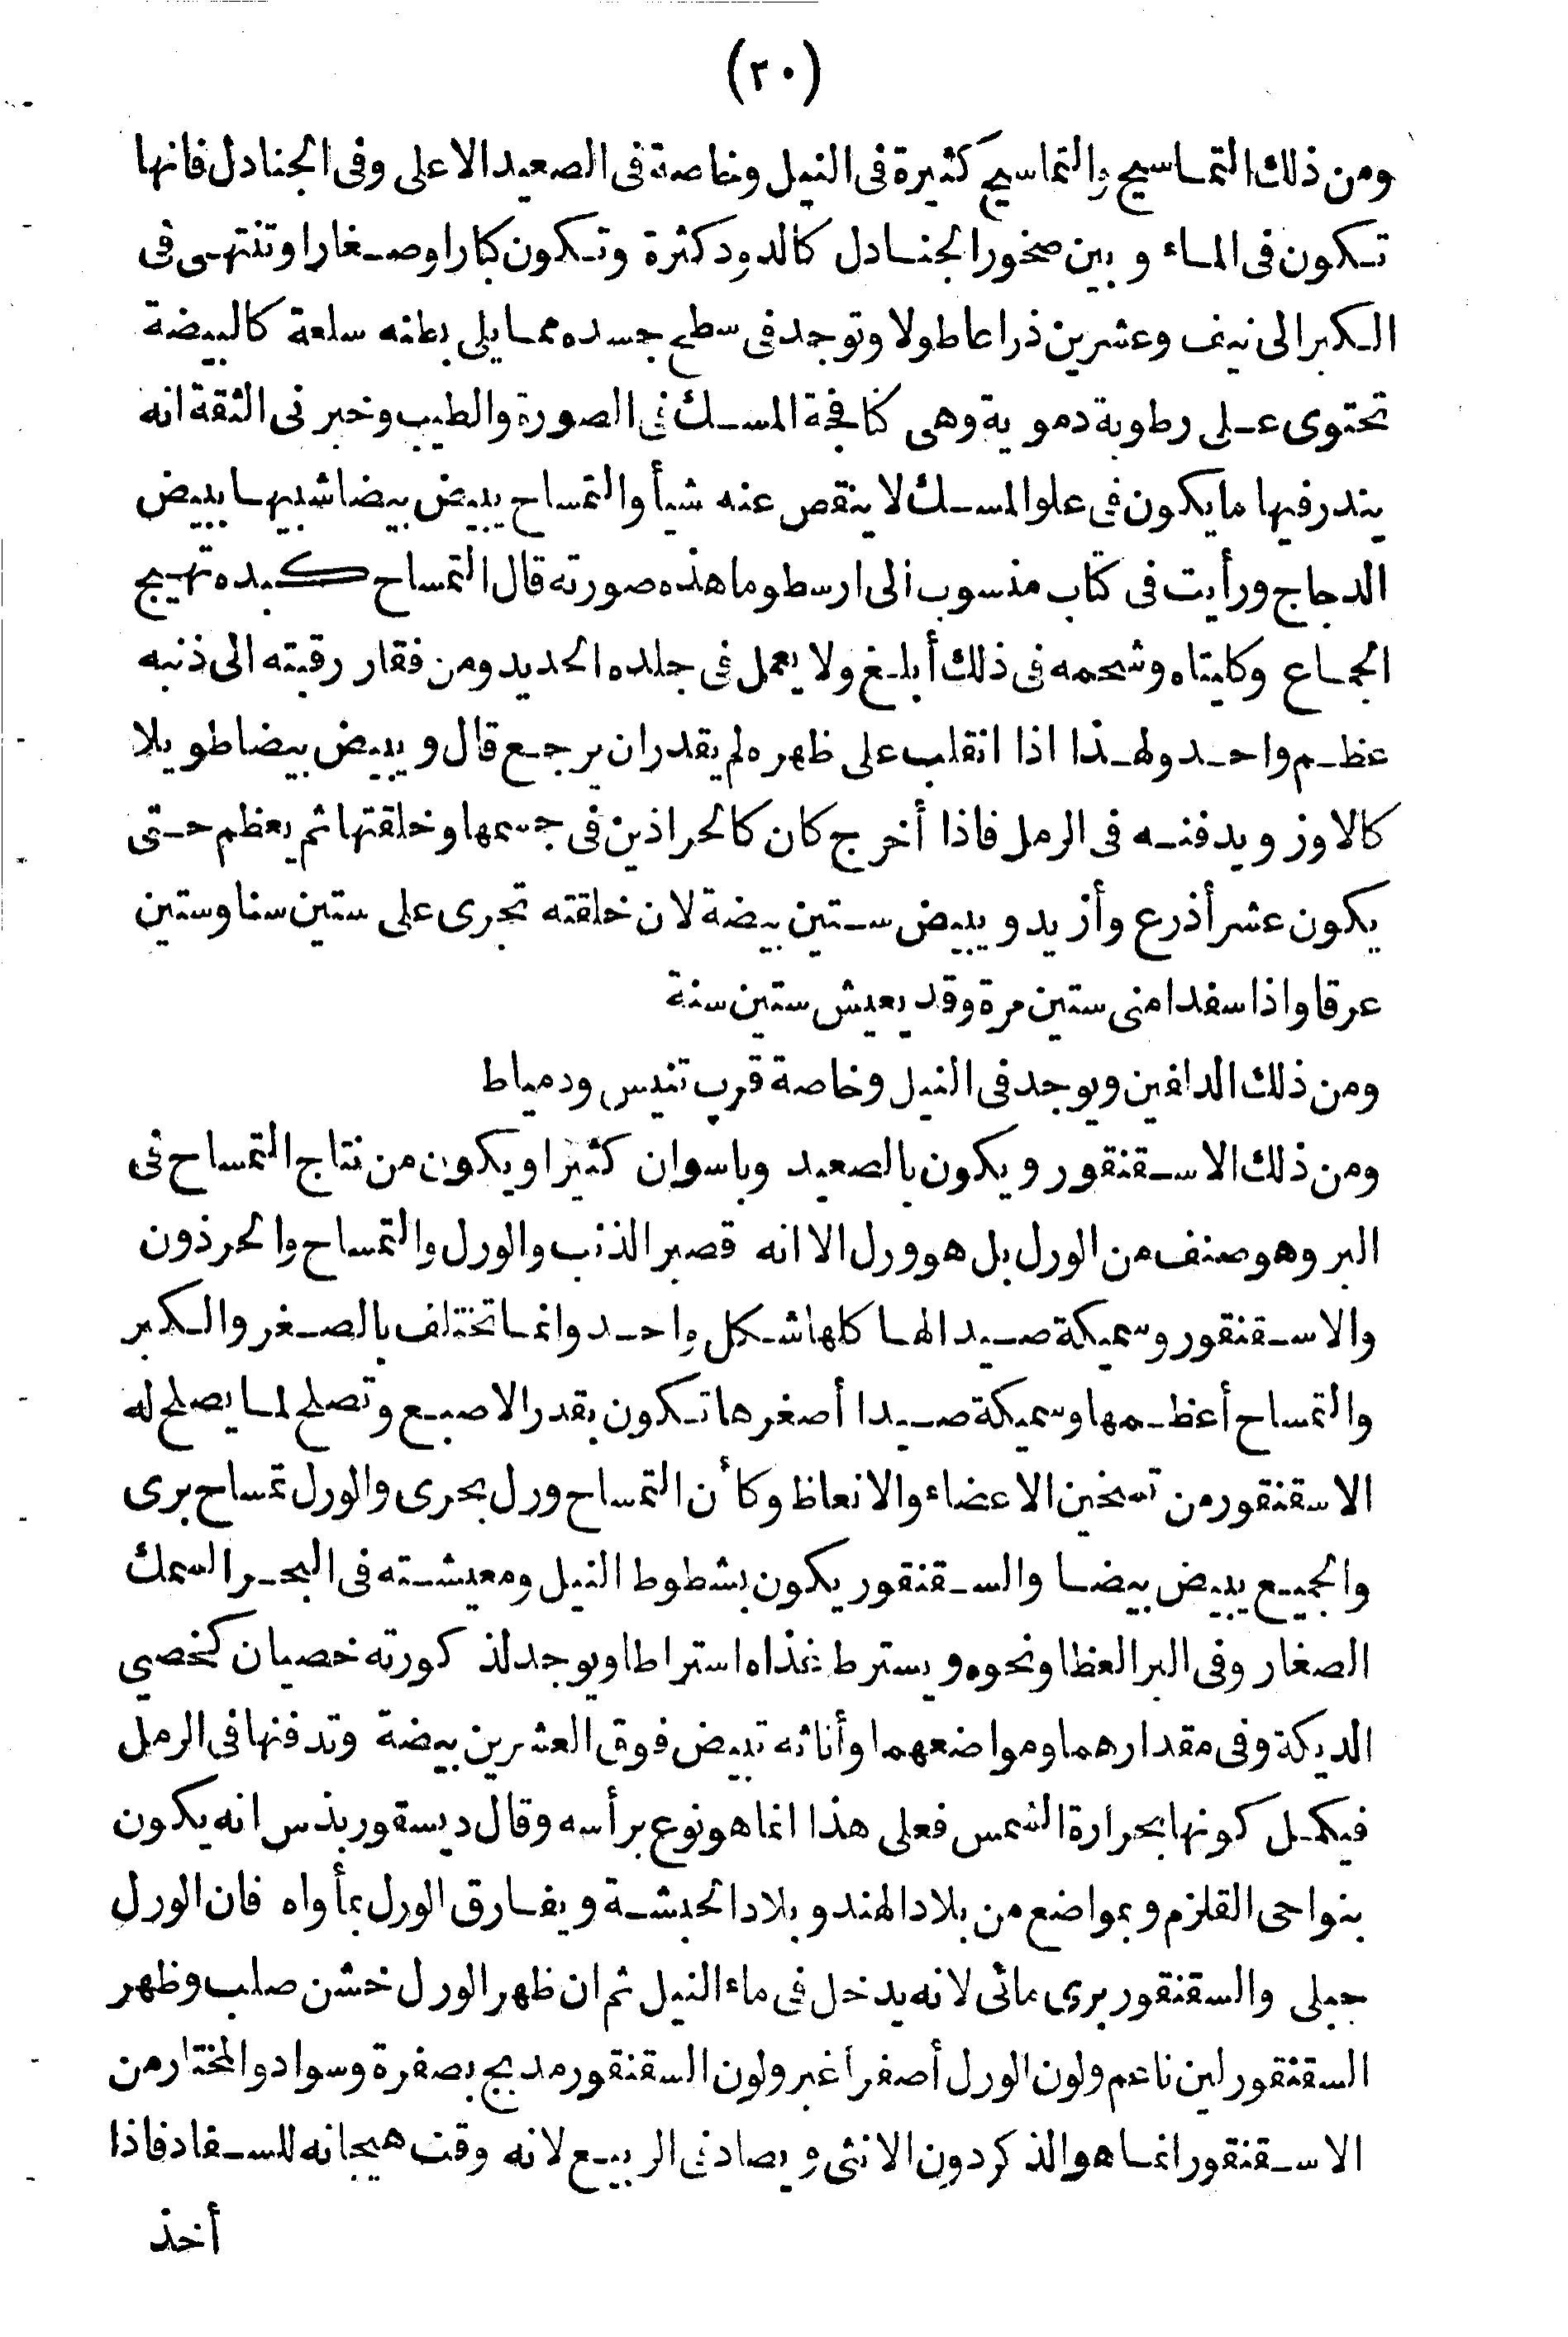 (٢٠)
ومن ذلك التماسيح والتماسيح كثيرة فى النيل وخاصة فى الصعيد الاعلى وفى الجنادل فانها
تكون فى الماء وبين صخور الجنادل كالدود كثرة وتكون كبارا وصغارا وتنتهى فى
الكبر الى نيف وعشرين ذراعا طولا وتوجد فى سطح جسده مما يلى بطنه سلعة كالبيضة
تحتوى على رطوبة دموية وهى كنافجة المسك فى الصورة والطيب وخبرنى الثقة انه
يندر فيها ما يكون فى علو المسك لا ينقص عنه شيأ والتمساح يبيض بيضا شبيها ببيض
الدجاج ورأيت فى كتاب منسوب الى ارسطو ما هذه صورته قال التمساح كبده تهيج
الجماع وكليتاه وشحمه فى ذلك أبلغ ولا يعمل فى جلده الحديد ومن فقار رقبته الى ذنبه
عظم واحد ولهذا اذا انقلب على ظهره لم يقدر ان يرجع قال ويبيض بيضا طويلا
كالاوز ويدفنه فى الرمل فاذا أخرج كان كالحراذين فى جسمها وخلقتها ثم يعظم حتى
يكون عشر أذرع وأزيد ويبيض ستين بيضة لان خلقته تجرى على ستين سنا وستين
عرقا واذا سفد امنى ستين مرة وقد يعيش ستين سنة
ومن ذلك الدلفين ويوجد فى النيل وخاصة قرب تنيس ودمياط
ومن ذلك الاسقنقور ويكون بالصعيد وباسوان كثيرا ويكون من نتاج التمساح فى
البر وهو صنف من الورل بل هو ورل الا انه قصير الذنب والورل والتمساح والحرذون
والاسقنقور وسميكة صيدا لها كلها شكل واحد وانما تختلف بالصغر والكبر
والتمساح أعظمها وسميكة صيدا أصغرها تكون بقدر الاصبع وتصلح لما يصلح له
الاسقنقور من تسخين الاعضاء والانعاظ وكأن التمساح ورل بحرى والورل تمساح برى
والجميع يبيض بيضا والسقنقور يكون بشطوط النيل ومعيشته فى البحر السمك
الصغار وفى البر العظا ونحوه ويسترط غذاه استراطا ويوجد لذكورته خصيان كخصي
الديكة وفى مقدارهما ومواضعهما وأناثه تبيض فوق العشرين بيضة وتدفنها فى الرمل
فيكمل كونها بحرارة الشمس فعلى هذا انما هو نوع برأسه وقال ديسقوريذس انه يكون
بنواحى القلزم وبمواضع من بلاد الهند وبلاد الحبشة ويفارق الورل بمأواه فان الورل
جبلى والسقنقور برى مائى لانه يدخل فى ماء النيل ثم ان ظهر الورل خشن صلب وظهر
السقنقور لين ناعم ولون الورل أصفر أغبر ولون السقنقور مدبج بصفرة وسواد والمختار من
الاسقنقور انما هو الذكر دون الانثى ويصاد فى الربيع لانه وقت هيجانه للسفاد فاذا
أخذ